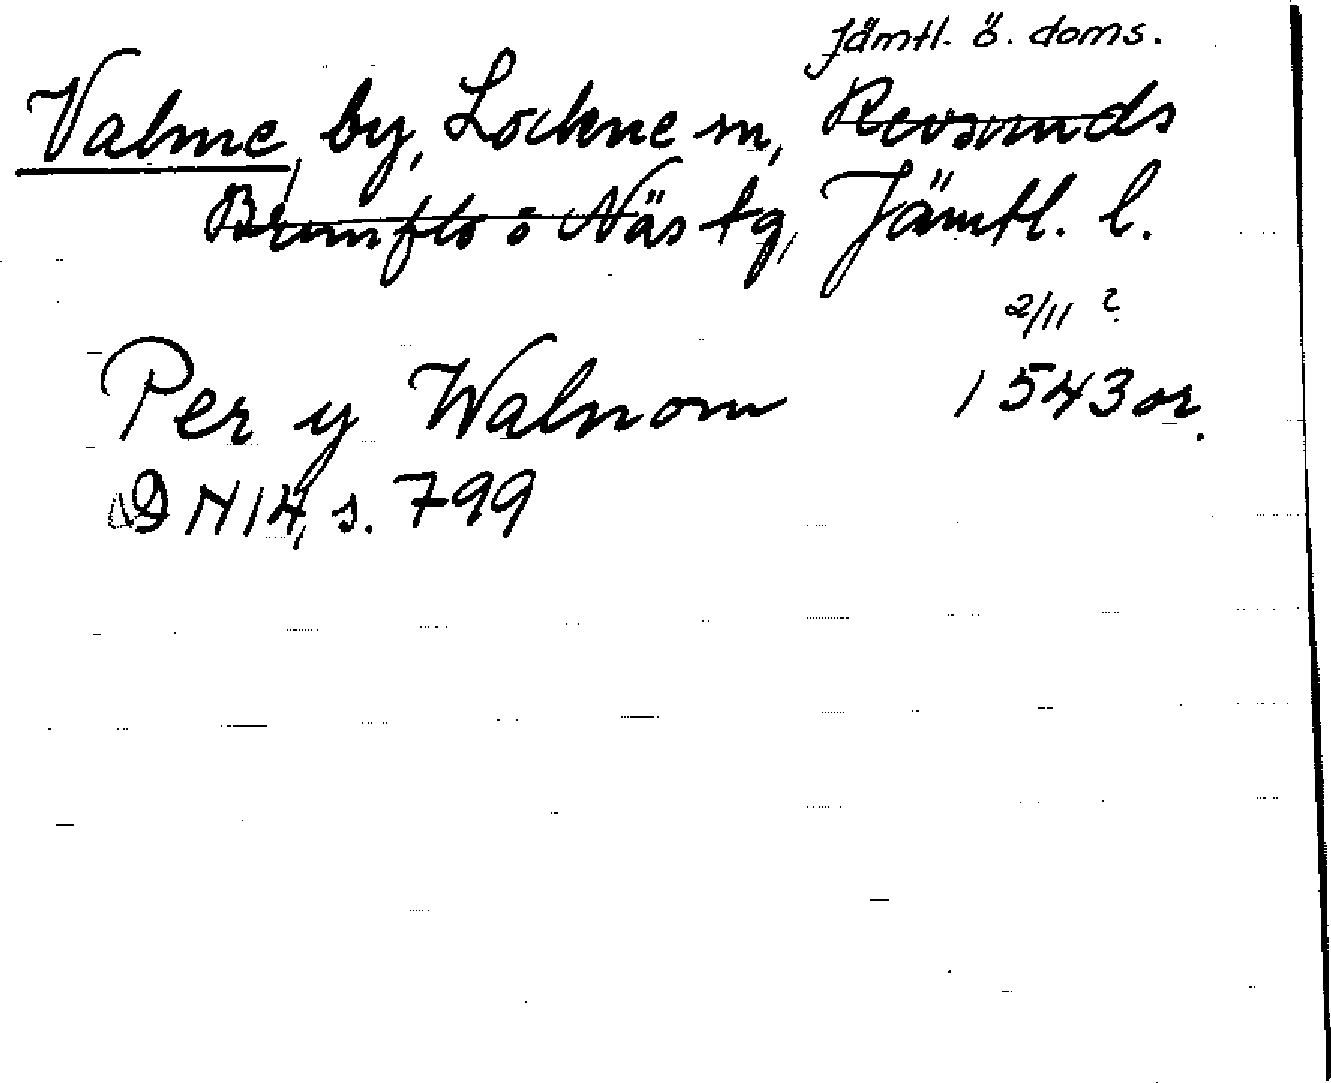 Jämtl. ö. doms.
Valme, by, Lockne sn, Revsunds
Brunflo o Näs tg, Jämtl. l.
2/11 ?
Per y Walnom 1543 or.
DN 14, s. 799